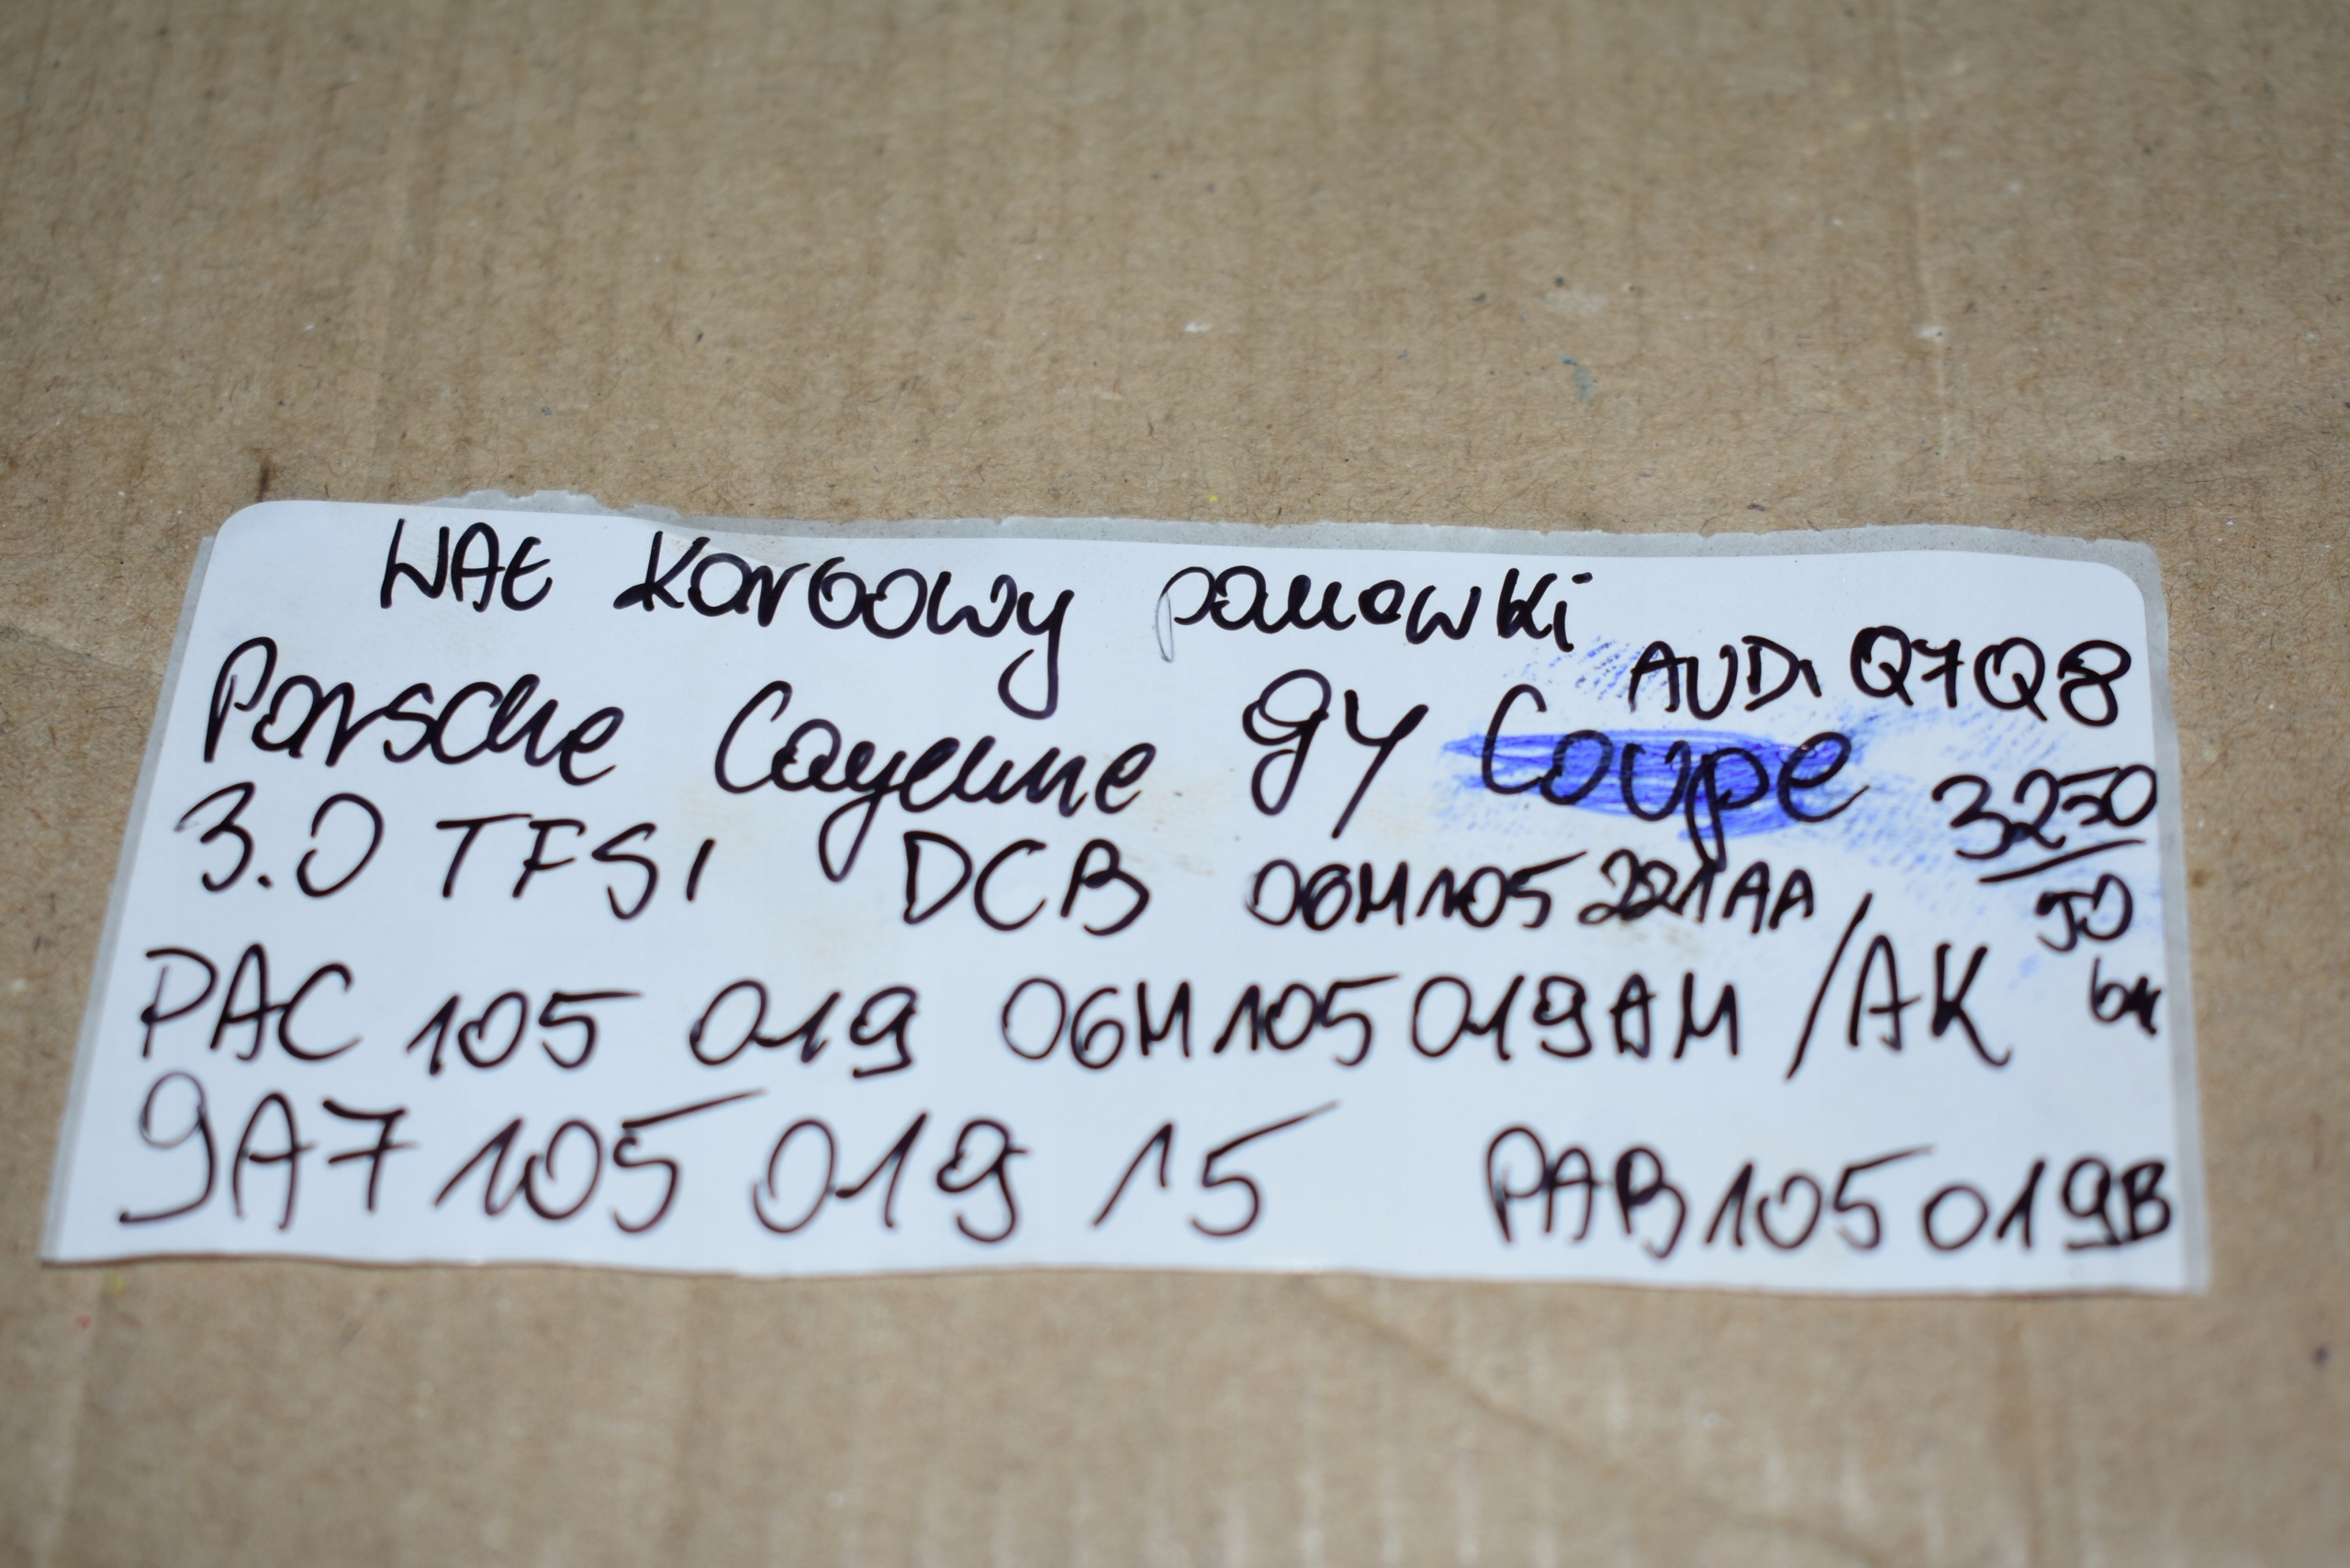 WAŁ Korbowy panewki
AUDI Q7 Q8
Porsche Cayenne 9Y Coupe
3250
3.0 TFSI DCB 06M105 221AA
50
PAC 105 019 06M105019AM /AK
9A7 105 019 15 PAB105019B